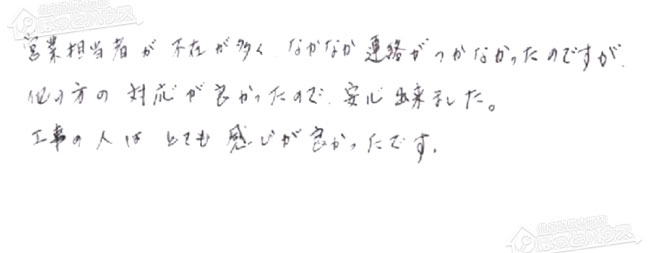 営業担当者が不在が多く、なかなか連絡がつかなかったのですが、
他の方の対応が良かったので、安心出来ました。
工事の人はとても感じが良かったです。